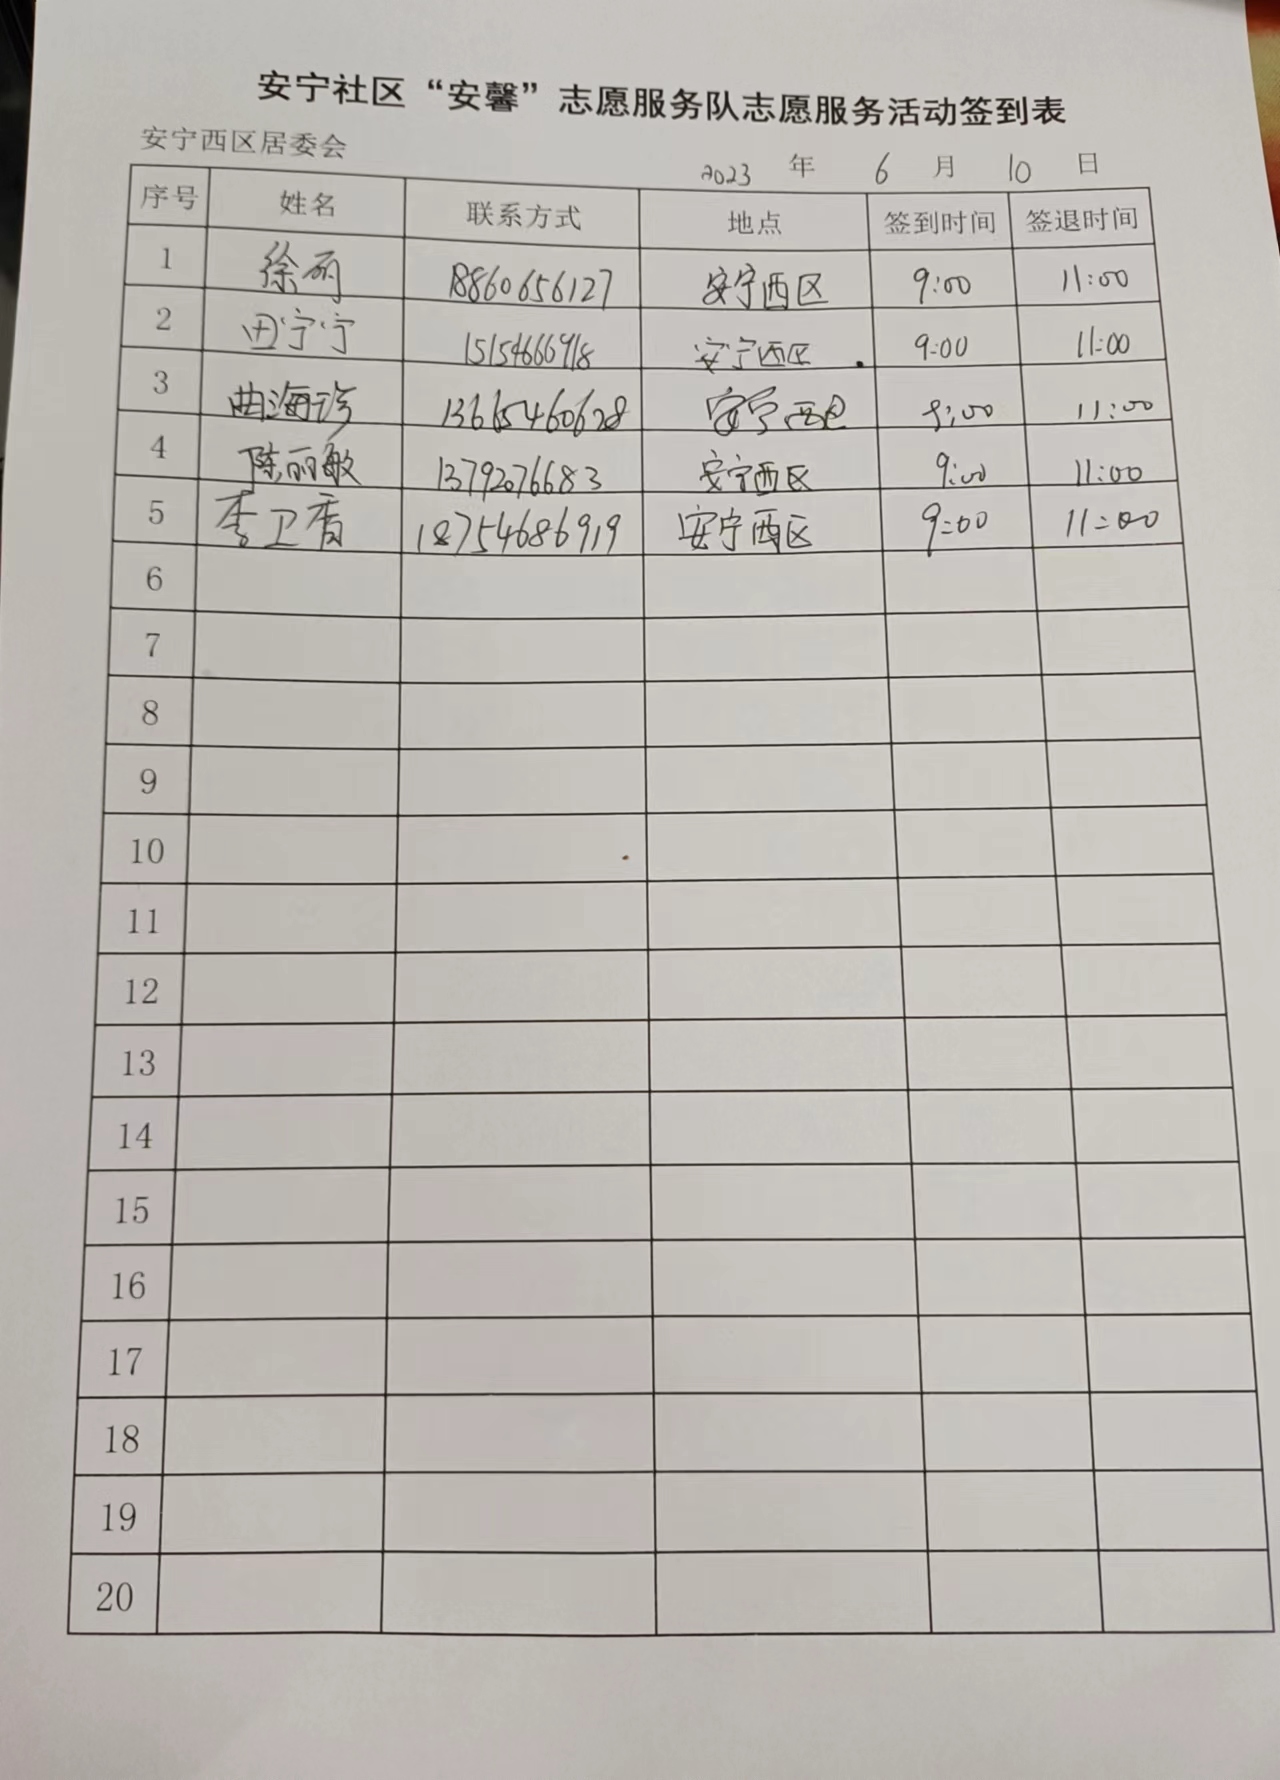 安宁社区“安馨”志愿服务队志愿服务活动签到表
安宁西区居委会 2023 年 6 月 10 日
序号 姓名 联系方式 地点 签到时间 签退时间
1 徐丽 18860656127 安宁西区 9:00 11:00
2 田宁宁 15154666918 安宁西区 9:00 11:00
3 曲海珍 13665460628 安宁西区 9:00 11:00
4 陈丽敏 13792076683 安宁西区 9:00 11:00
5 李卫香 18754686919 安宁西区 9:00 11:00
6
7
8
9
10
11
12
13
14
15
16
17
18
19
20